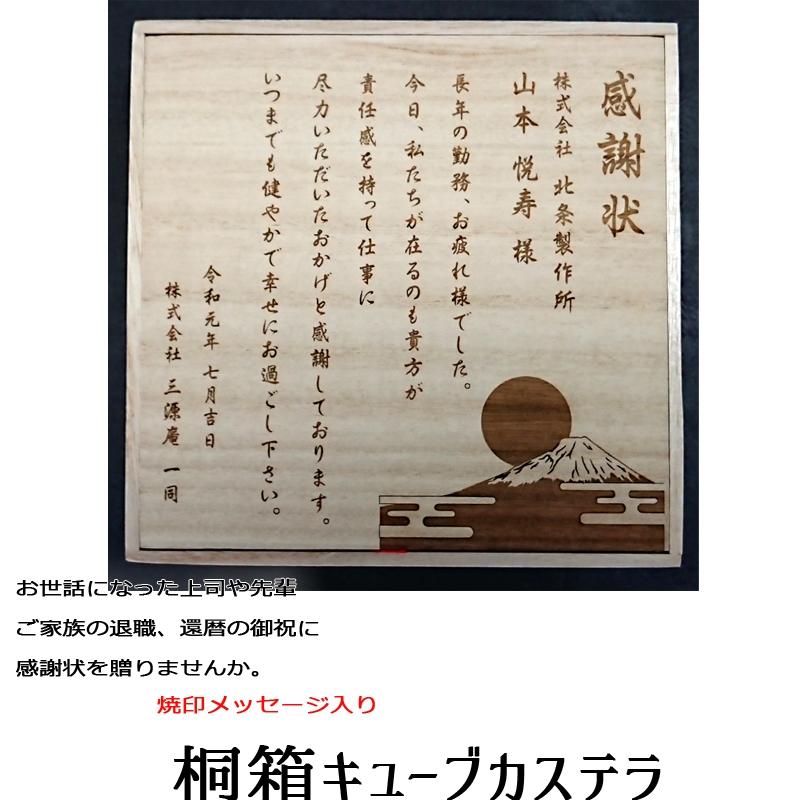 感謝状
株式会社 北条製作所
山本 悦寿 様
長年の勤務、お疲れ様でした。
今日、私たちが在るのも貴方が
責任感を持って仕事に
尽力いただいたおかげと感謝しております。
いつまでも健やかで幸せにお過ごし下さい。
令和元年 七月吉日
株式会社 三源庵 一同
お世話になった上司や先輩
ご家族の退職、還暦の御祝に
感謝状を贈りませんか。
焼印メッセージ入り
桐箱キューブカステラ